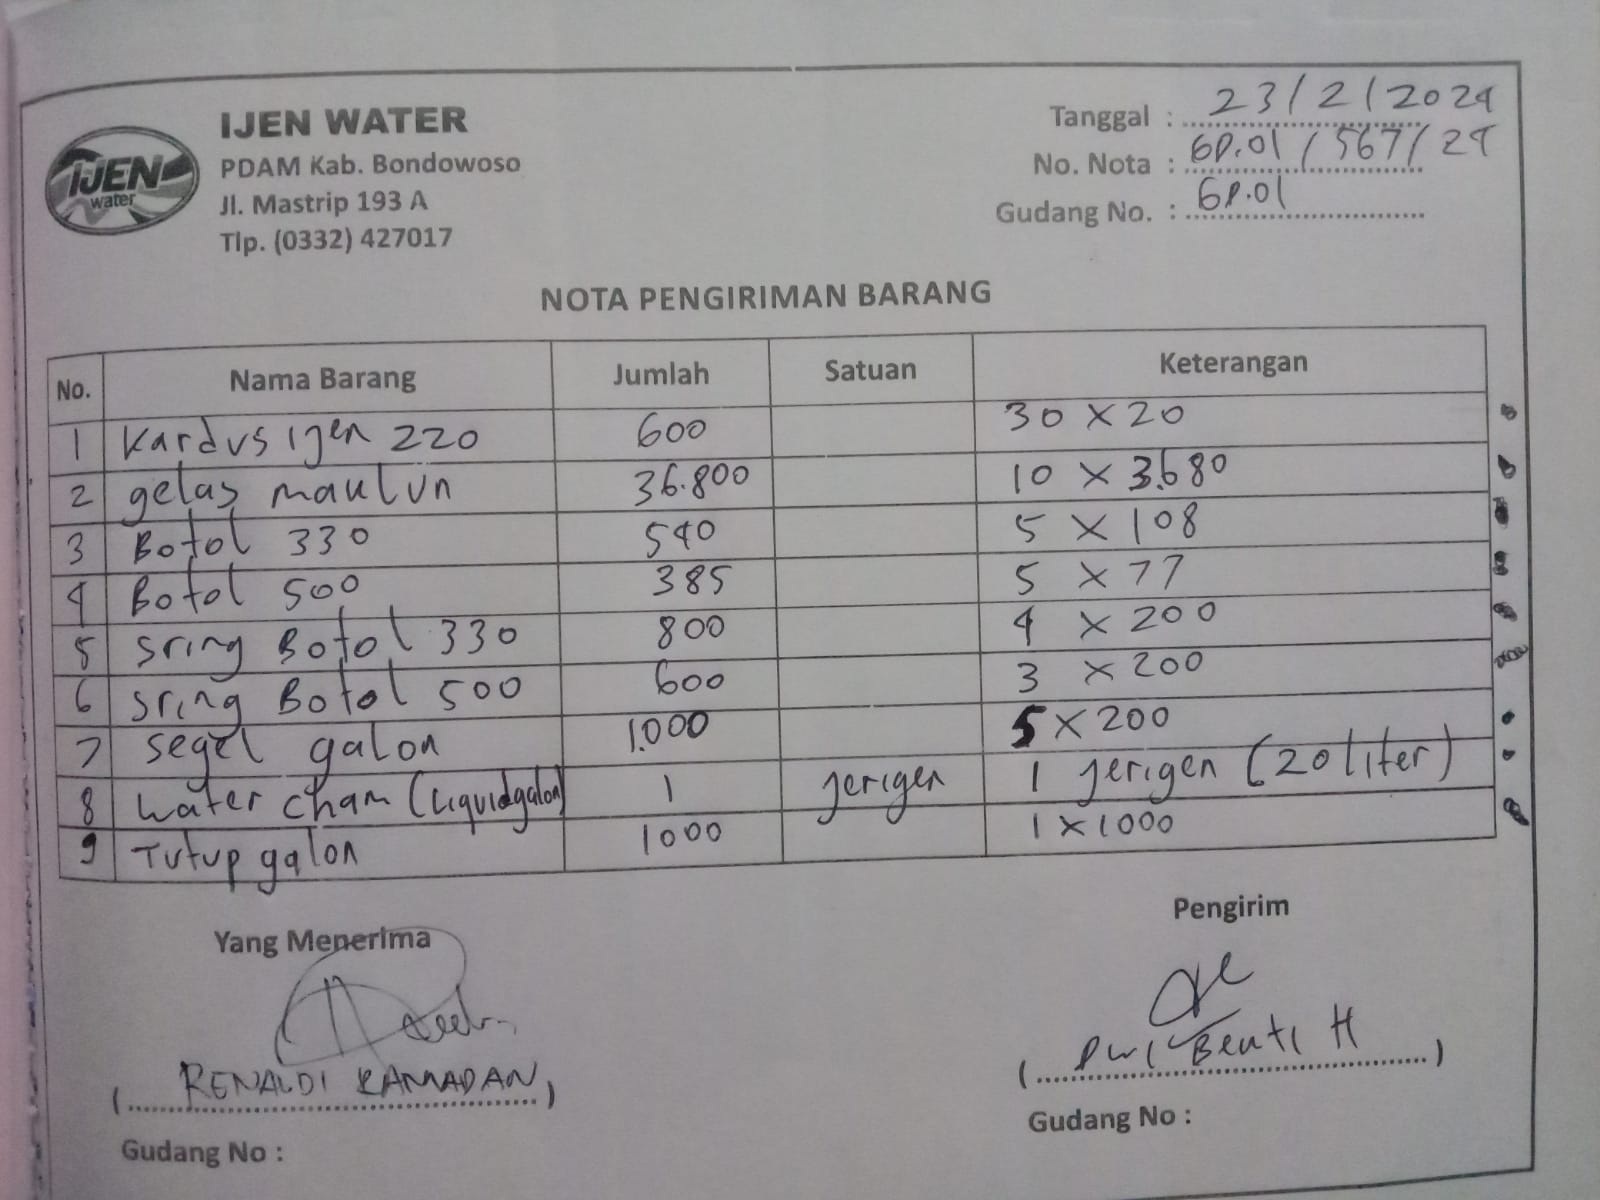 IJEN water
IJEN WATER
PDAM Kab. Bondowoso
Jl. Mastrip 193 A
Tlp. (0332) 427017
Tanggal : 23/2/2024
No. Nota : GP.01/567/24
Gudang No. : GP.01
NOTA PENGIRIMAN BARANG
No. Nama Barang Jumlah Satuan Keterangan
1 Kardus ijen 220 600 30 x 20
2 gelas maulun 36.800 10 x 3.680
3 Botol 330 540 5 x 108
4 Botol 500 385 5 x 77
5 Sring Botol 330 800 4 x 200
6 Sring Botol 500 600 3 x 200
7 Segel galon 1.000 5 x 200
8 Water cham (Liquidgalon) 1 jerigen 1 jerigen (20 liter)
9 Tutup galon 1000 1 x 1000
Yang Menerima Pengirim
(RENALDI RAMADAN) (Dwi Benti H)
Gudang No : Gudang No :